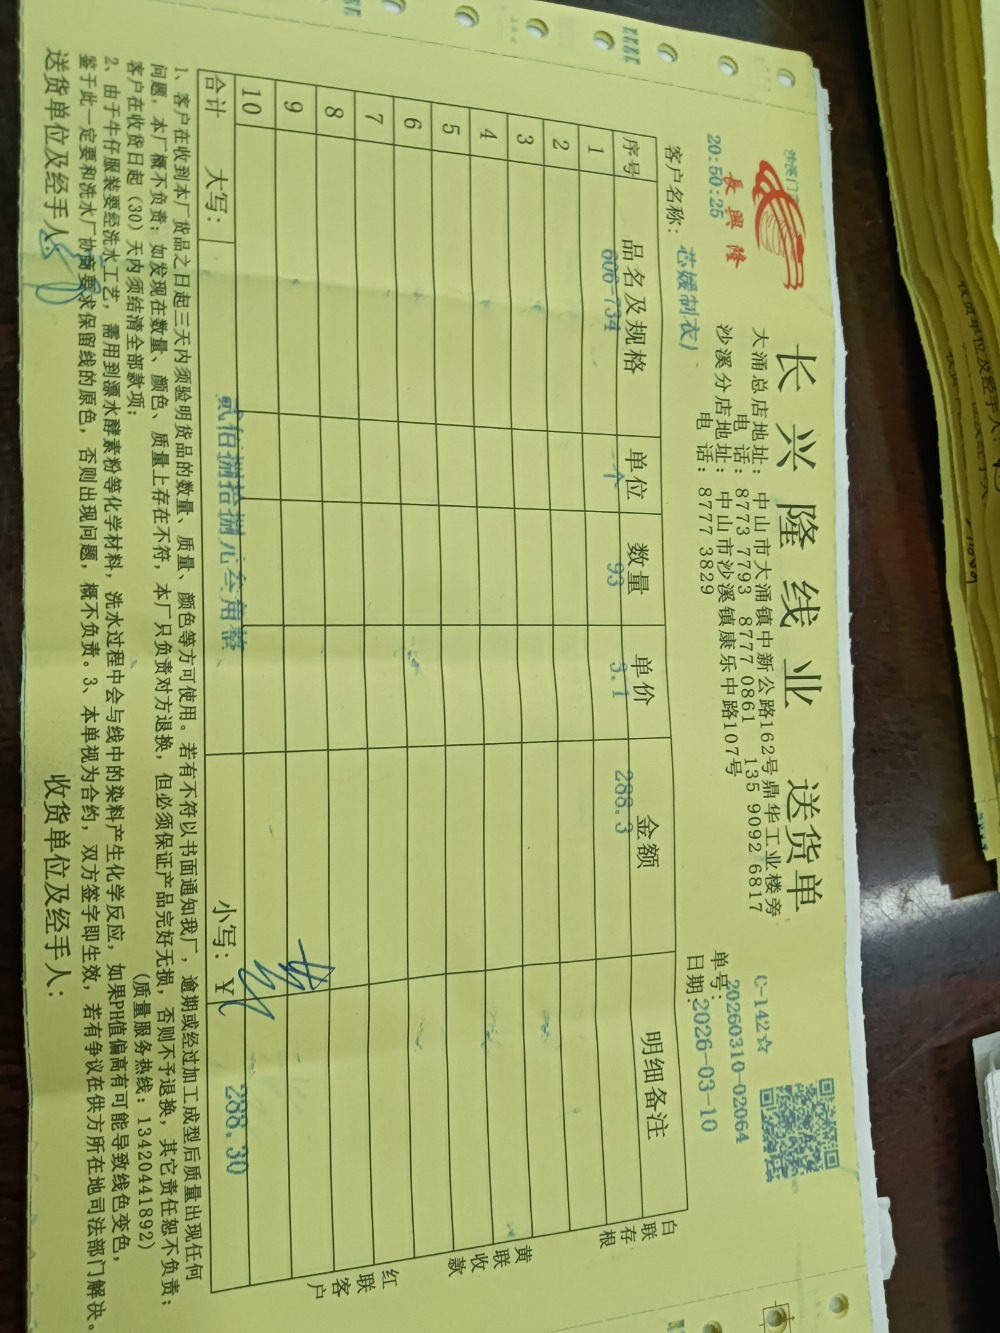 长兴隆线业 送货单
長興隆
大涌总店地址：中山市大涌镇中新公路162号鼎华工业楼旁
电 话：8773 7793 8777 0861 135 9092 6817
沙溪分店地址：中山市沙溪镇康乐中路107号
电 话：8777 3829
20:50:25
C-142☆
单号：20260310-02064
日期：2026-03-10
客户名称：芯媛制衣厂
序号 品名及规格 单位 数量 单价 金额 明细备注
1 606-734 个 93 3.1 288.3
2
3
4
5
6
7
8
9
10
合计 大写：贰佰捌拾捌元叁角整 小写：￥ 288.30
白联存根
黄联收款
红联客户
1、客户在收到本厂货品之日起三天内须验明货品的数量、质量、颜色等方可使用。若有不符以书面通知我厂，逾期或经过加工成型后质量出现任何
问题，本厂概不负责；如发现在数量、颜色、质量上存在不符，本厂只负责对方退换，但必须保证产品完好无损，否则不予退换，其它责任恕不负责；
客户在收货日起（30）天内须结清全部款项； （质量服务热线：13420441892）
2、由于牛仔服装要经洗水工艺，需用到漂水酵素粉等化学材料，洗水过程中会与线中的染料产生化学反应，如果PH值偏高有可能导致线色变色，
鉴于此一定要和洗水厂协商要求保留线的原色，否则出现问题，概不负责。3、本单视为合约，双方签字即生效，若有争议在供方所在地司法部门解决。
送货单位及经手人： 收货单位及经手人：